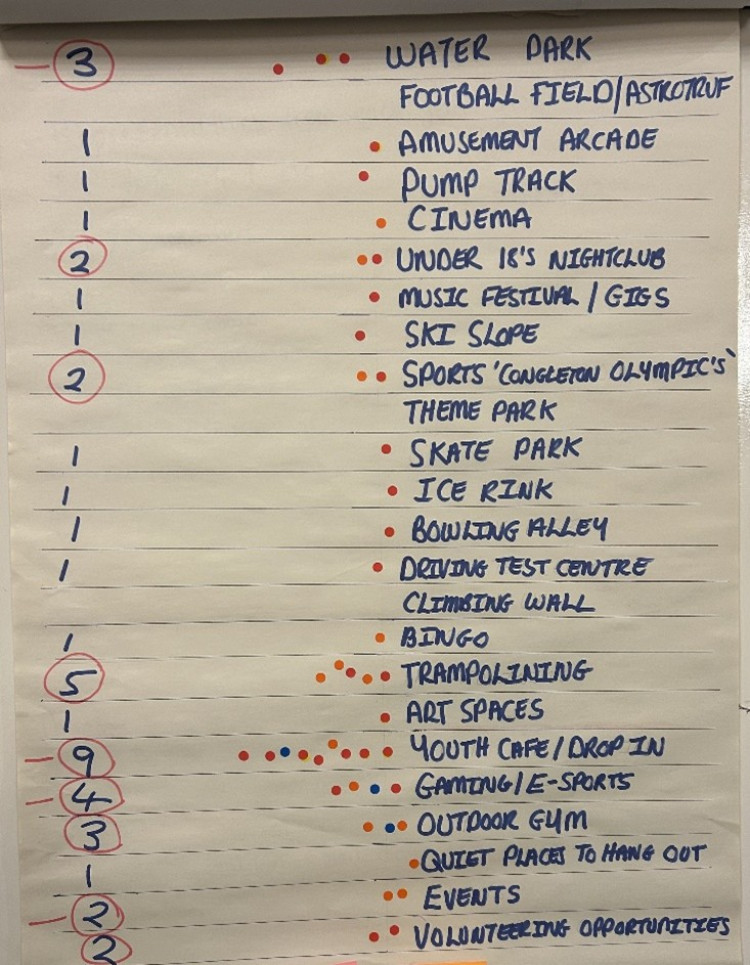 3 WATER PARK
FOOTBALL FIELD/ASTROTRUF
1 AMUSEMENT ARCADE
1 PUMP TRACK
1 CINEMA
2 UNDER 18'S NIGHTCLUB
1 MUSIC FESTIVAL / GIGS
1 SKI SLOPE
2 SPORTS 'CONGLETON OLYMPIC'S'
THEME PARK
1 SKATE PARK
1 ICE RINK
1 BOWLING ALLEY
1 DRIVING TEST CENTRE
CLIMBING WALL
1 BINGO
5 TRAMPOLINING
1 ART SPACES
9 YOUTH CAFE/DROP IN
4 GAMING/E-SPORTS
3 OUTDOOR GYM
1 QUIET PLACES TO HANG OUT
2 EVENTS
2 VOLUNTEERING OPPORTUNITIES